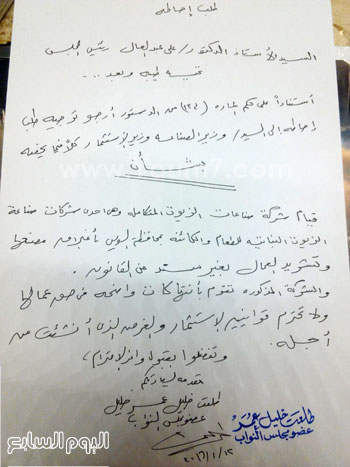 طلب إحاطه
السيد الأستاذ الدكتور / على عبد العال رئيس المجلس
تحيه طيبه وبعد ...
استناداً على حكم الماده (١٣٤) من الدستور أرجو توجيه طلب
إحاطه الى السيد / وزير الصناعه وزير الإستثمار كلاً فيما يخصه
بشأن
قيام شركة صناعات الزيوت المتكامله وهى احدى شركات صناعة
الزيوت النباتيه للطعام والكائنه بمحافظة السويس بأغلاق مصنعها
وتشريد العمال بغير سند من القانون .
والشركة المذكوره تقوم بأنتهاكات واضحه فى حق عمالها
ولا تحترم قوانيين الإستثمار والغرض الذى أنشئت من
أجله .
وتفضلوا بقبول وافر الإحترام ،
مقدمه لسيادتكم
طلعت خليل عمر خليل
عضو مجلس النواب
طلعت خليل عمر
عضو مجلس النواب
٢٠١٦/١/١٢
اليوم السابع